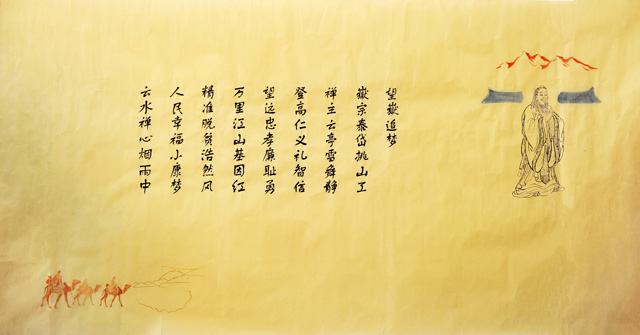 望嶽追梦
嶽宗泰岱挑山工
禅主云亭雲舞静
登高仁义礼智信
望远忠孝廉耻勇
万里江山基因红
精准脱贫浩然风
人民幸福小康梦
云水禅心烟雨中